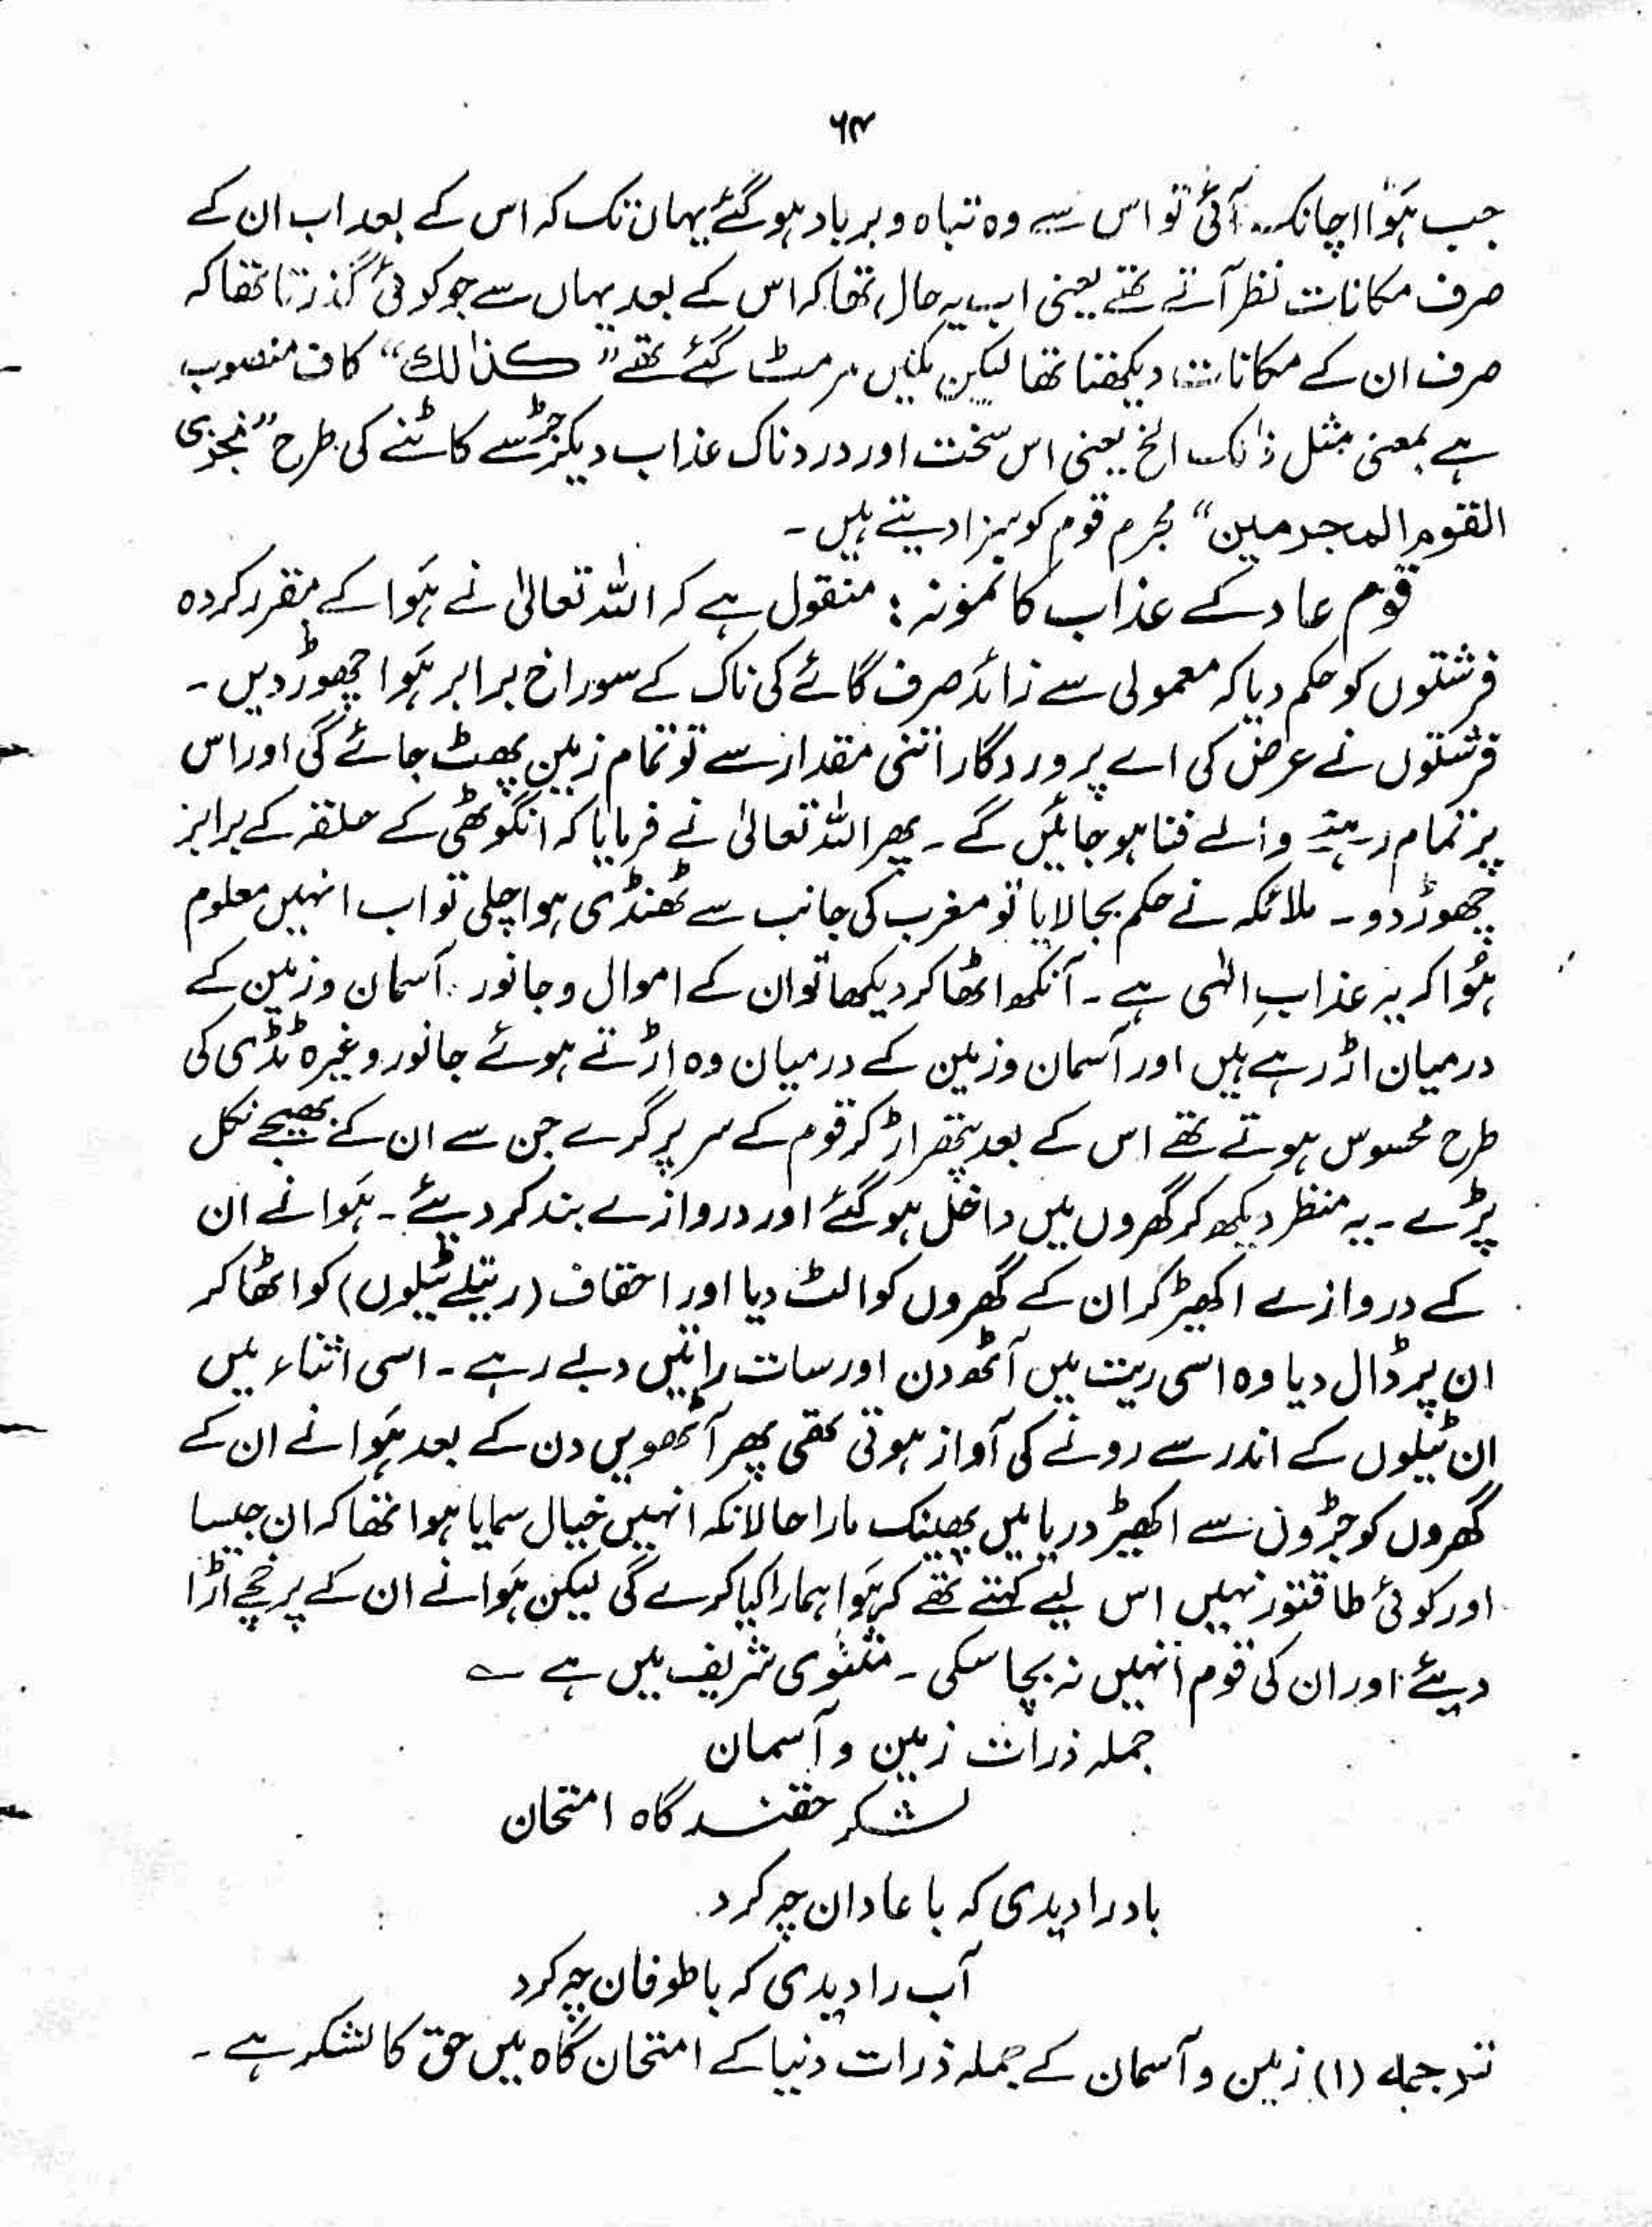 ۶۴
جب ہَوا اچانک آئی تو اس سے وہ تباہ و برباد ہو گئے یہاں تک کہ اس کے بعد اب ان کے
صرف مکانات نظر آتے تھے یعنی اب یہ حال تھا کہ اس کے بعد یہاں سے جو کوئی گذرتا تھا کہ
صرف ان کے مکانات دیکھتا تھا لیکن مکیں مر مٹ گئے تھے "کذالك" کاف منصوب
ہے بمعنی مثل ذٰلک الخ یعنی اس سخت اور دردناک عذاب دیکر جڑ سے کاٹنے کی طرح "نجزی
القوم المجرمین" مجرم قوم کو سزا دیتے ہیں۔
قوم عاد کے عذاب کا نمونہ : منقول ہے کہ اللہ تعالیٰ نے ہَوا کے مقرر کردہ
فرشتوں کو حکم دیا کہ معمولی سے زائد صرف گائے کی ناک کے سوراخ برابر ہَوا چھوڑ دیں۔
فرشتوں نے عرض کی اے پروردگار اتنی مقدار سے تو تمام زمین پھٹ جائے گی اور اس
پر تمام رہنے والے فنا ہو جائیں گے۔ پھر اللہ تعالیٰ نے فرمایا کہ انگوٹھی کے حلقہ کے برابر
چھوڑ دو۔ ملائکہ نے حکم بجا لایا تو مغرب کی جانب سے ٹھنڈی ہوا چلی تو اب انہیں معلوم
ہُوا کہ یہ عذابِ الٰہی ہے۔ آنکھ اٹھا کر دیکھا تو ان کے اموال و جانور آسمان و زمین کے
درمیان اڑ رہے ہیں اور آسمان و زمین کے درمیان وہ اڑتے ہوئے جانور وغیرہ ٹڈی کی
طرح محسوس ہوتے تھے اس کے بعد پتھر اڑ کر قوم کے سر پر گرے جن سے ان کے بھیجے نکل
پڑے۔ یہ منظر دیکھ کر گھروں میں داخل ہو گئے اور دروازے بند کر دیئے۔ ہَوا نے ان
کے دروازے اکھیڑ کر ان کے گھروں کو الٹ دیا اور احقاف (ریتلے ٹیلوں) کو اٹھا کر
ان پر ڈال دیا وہ اسی ریت میں آٹھ دن اور سات راتیں دبے رہے۔ اسی اثناء میں
ان ٹیلوں کے اندر سے رونے کی آواز ہوتی تھی پھر آٹھویں دن کے بعد ہَوا نے ان کے
گھروں کو جڑوں سے اکھیڑ دریا میں پھینک مارا حالانکہ انہیں خیال سمایا ہوا تھا کہ ان جیسا
اور کوئی طاقتور نہیں اس لیے کہتے تھے کہ ہَوا ہمارا کیا کرے گی لیکن ہَوا نے ان کے پرخچے اڑا
دیئے اور ان کی قوم انہیں نہ بچا سکی۔ مثنوی شریف میں ہے ؎
جملہ ذرات زمین و آسمان
لشکر حقند گاہ امتحان
باد را دیدی کہ با عادان چہ کرد
آب را دیدی کہ با طوفان چہ کرد
ترجمہ (۱) زمین و آسمان کے جملہ ذرات دنیا کے امتحان گاہ میں حق کا لشکر ہے۔